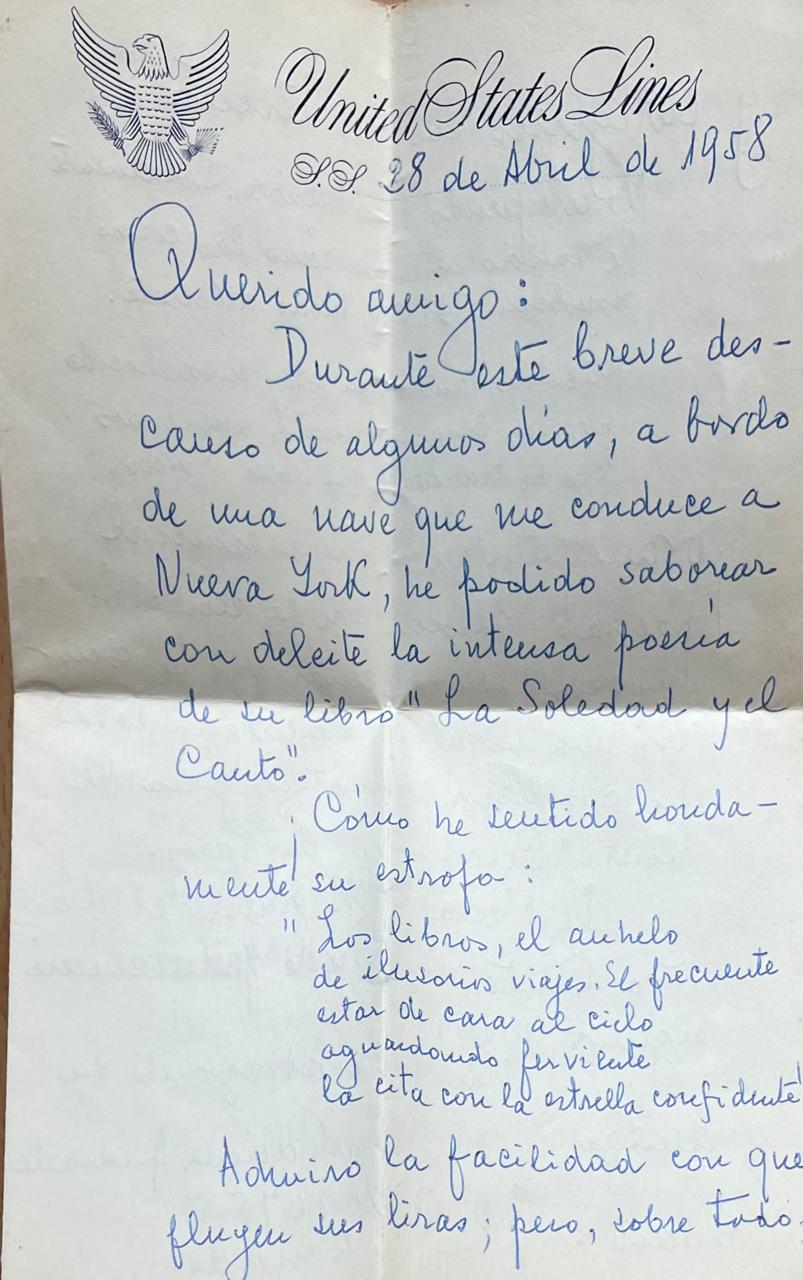 United States Lines
S.S. 28 de Abril de 1958
Querido amigo:
Durante este breve des-
canso de algunos días, a bordo
de una nave que me conduce a
Nueva York, he podido saborear
con deleite la intensa poesía
de su libro "La Soledad y el
Canto".
¡Cómo he sentido honda-
mente su estrofa:
"Los libros, el anhelo
de ilusorios viajes. El frecuente
estar de cara al cielo
aguardando ferviente
la cita con la estrella confidente"
Admiro la facilidad con que
fluyen sus liras; pero, sobre todo,